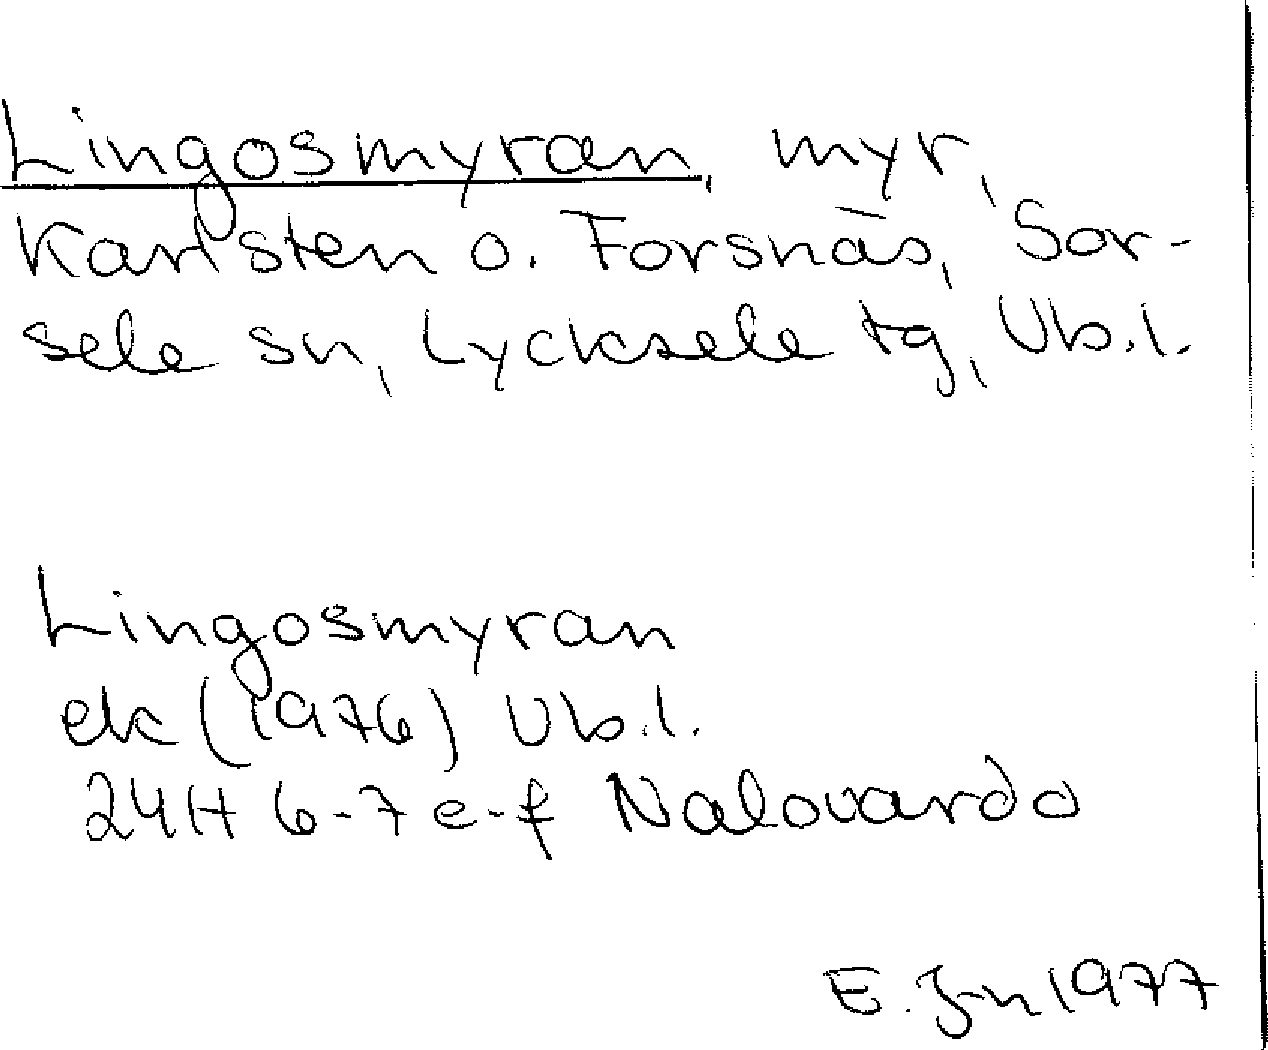 Lingosmyran, myr,
Karlsten o. Forsnäs, Sor-
sele sn, Lycksele tg, Vb.l.
Lingosmyran
ek (1976) Vb.l.
24H 6-7 e-f Nalovardo
E. J-n 1977